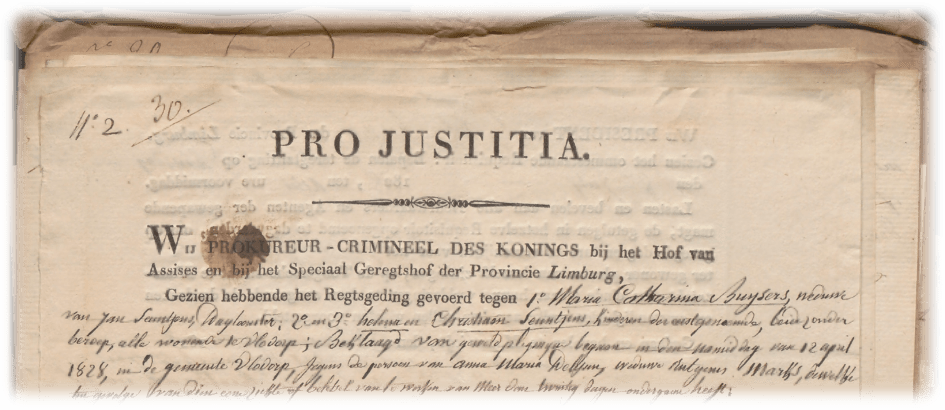 N° 2. 30.
PRO JUSTITIA.
WIJ PROKUREUR-CRIMINEEL DES KONINGS bij het Hof van
Assises en bij het Speciaal Geregtshof der Provincie Limburg,
Gezien hebbende het Regtsgeding gevoerd tegen 1° Maria Catharina Buysers, weduwe
van Jan Seuntjens, Daglooner; 2° en 3° helena en Christiaan Seuntjens, kinderen der eerstgenoemde, beide zonder
beroep, alle wonende te Vlodrop; Beklaagd van geweldplegingen begaan in den namiddag van 12 april
1828, in de gemeente Vlodrop, jegens de persoon van anna Maria weduwe
ten gevolge van dien eene ziekte of beletsel van te werken van Meer dan twintig dagen ondergaan heeft;